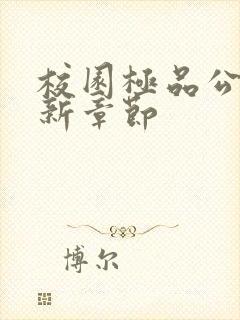 校园極品公
新章節
博尔